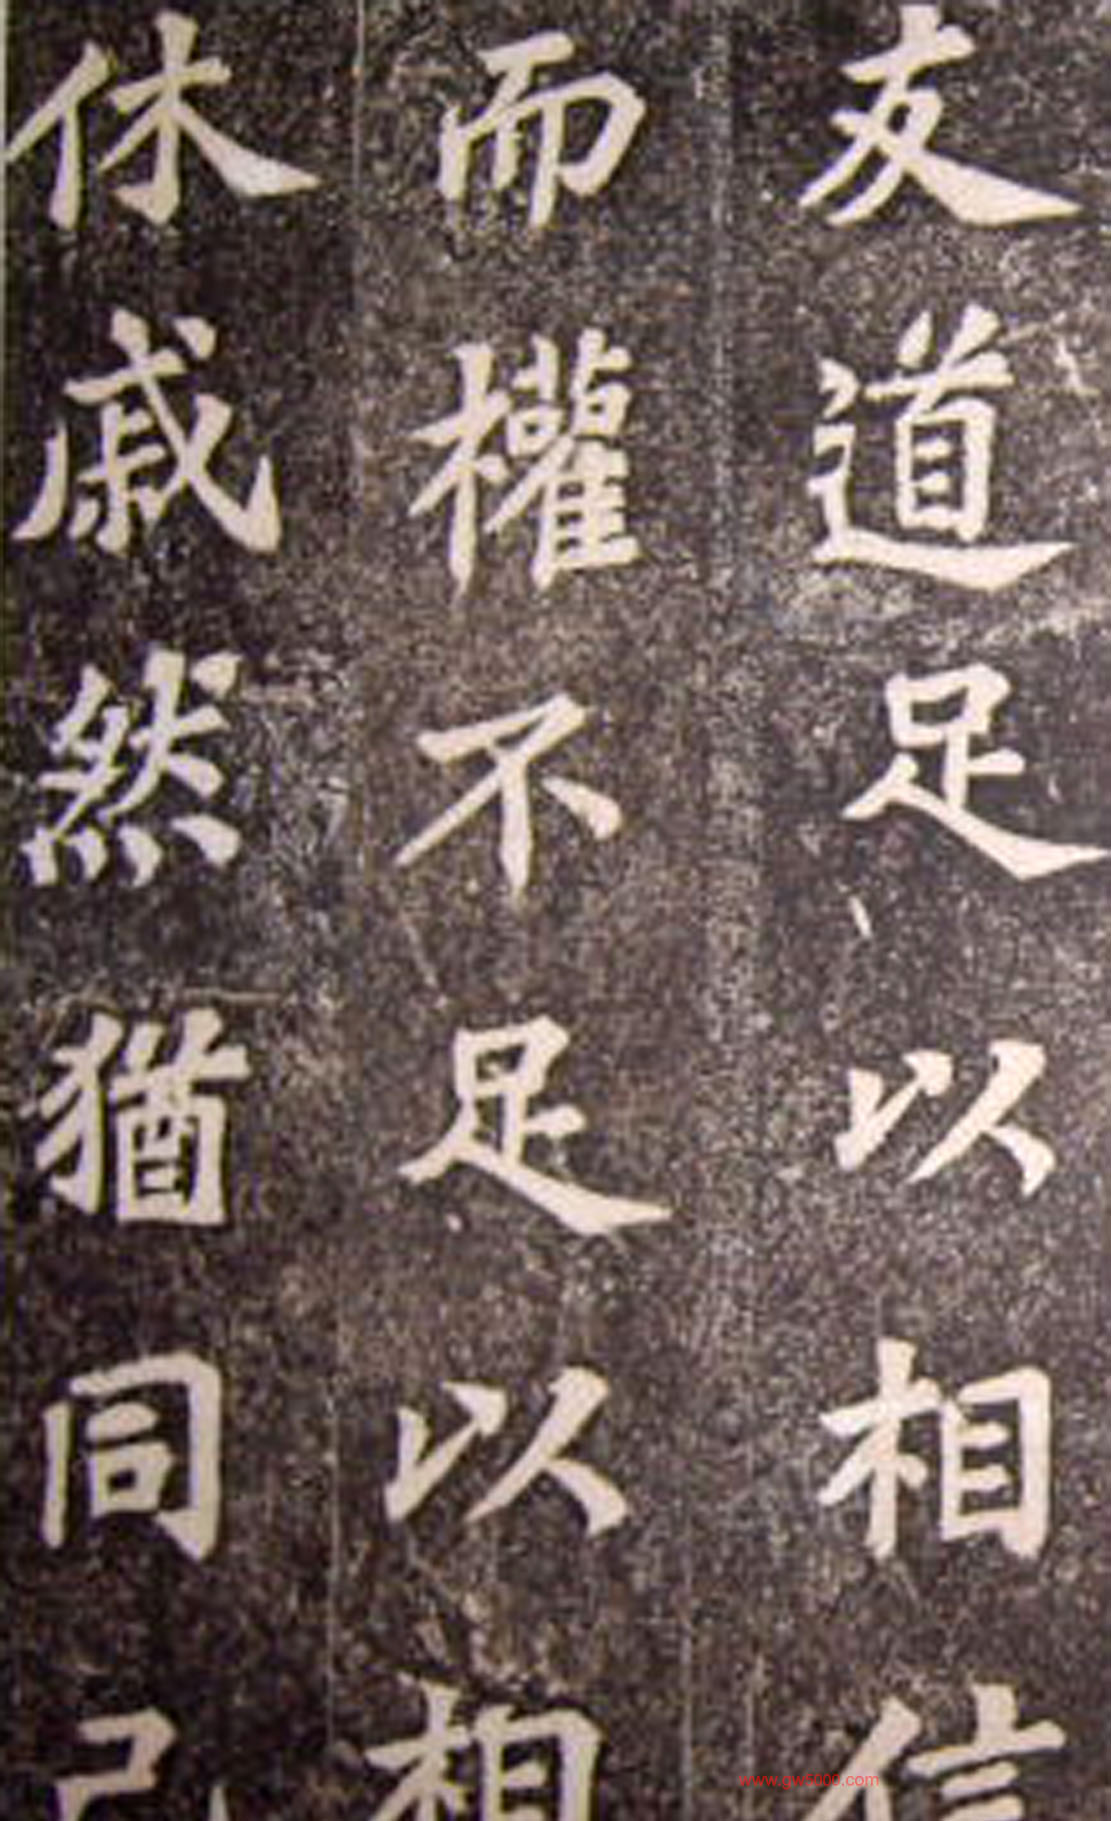 友道足以相信
而權不足以相
休戚然猶同己
www.gw5000.com